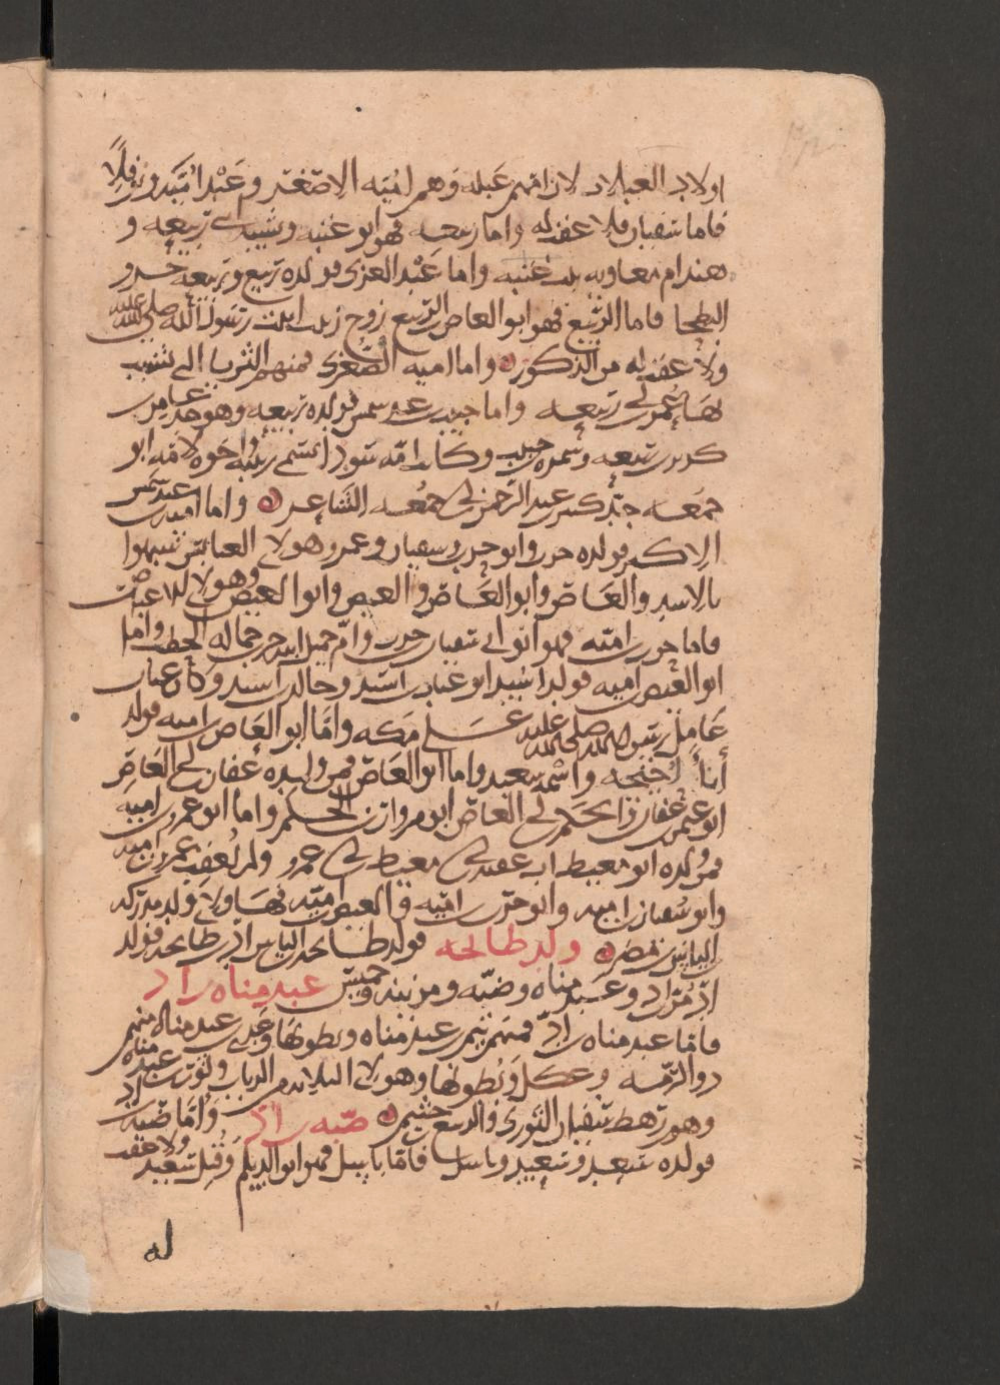 اولاد العبلات لان امهم عبله وهم اميه الاصغر وعبد اميه ونوفلا
فاما سفيان فلا عقب له واما ربيعه فهو ابو عتبه وشيبه ابني ربيعه و
هند ام معاويه بنت عتبه واما عبد العزى فولده ربيع وربيعه جرو
البطحا فاما الربيع فهو ابو العاص بن الربيع زوج زينب ابنت رسول الله صلى الله عليه
ولا عقب له من الذكور واما اميه الصغرى فمنهم الثريا التي تشبب
بها عمر بن ابي ربيعه واما حبيب بن عبد شمس فولده ربيعه وهو جد عامر بن
كريز بن ربيعه وسمره بن حبيب وكانت امه واخوه لامه ابو
جمعه جد كثير بن عبد الرحمن بن ابي جمعه الشاعر واما اميه بن عبد شمس
الاكبر فولده حرب وابو حرب وسفيان وعمرو وهولاى العنابس شبهوا
بالاسد والعاص وابو العاص والعيص وابو العيص وهولاى الاعياص
فاما حرب بن اميه فهو ابو ابي سفيان بن حرب وام جميل ابنت حرب حماله الحطب واما
ابو العيص بن اميه فولد اسيد ابو عتاب بن اسيد وخالد بن اسيد وكان عتاب
عامل رسول الله صلى الله عليه على مكه واما ابو العاص بن اميه فولد
أبا أحيحه واسمه سعيد واما ابو العاص فمن ولده عفان بن ابي العاص
ابو عثمن بن عفان والحكم بن ابي العاص ابو مروان بن الحكم واما ابو عمرو بن اميه
فمن ولده ابو معيط اب عقبه بن ابي معيط بن ابي عمرو ولم يعقب عمرو بن اميه
وابو سفيان بن اميه وابو حرب بن اميه والعيص بن اميه فهاولاى ولد مدركه
الياس بن مضر ولد طابخه فولد طابخه بن الياس اد بن طابخه فولد
اد مر بن اد وعبد مناه وضبه ومزينه وحميس عبد مناه بن اد
فاما عبد مناه بن اد فمنهم تيم بن عبد مناه وبطونها وعدي بن عبد مناه منهم
ذو الرمه وعكل وبطونها وهولاى الثلاثه من الرباب وثور بن عبد مناه
وهو رهط سفيان الثورى والربيع بن خثيم ضبه بن اد واما ضبه بن اد
فولده سعد وسعيد وباسل فاما باسل فهو ابو الديلم وقتل سعيد ولا عقب
له